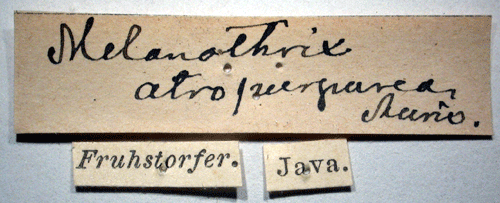 Melanothrix
atropurpurea,
Auriv.
Fruhstorfer.
Java.